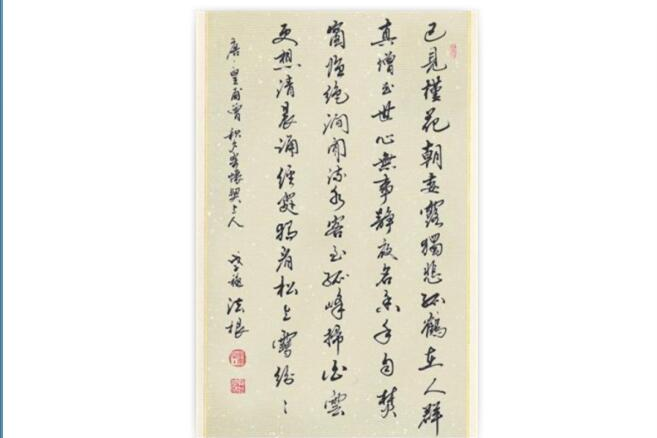 已見槿花朝委露獨悲孤鶴在人群
真僧出世心無事靜夜名香手自焚
窗臨絕澗聞流水客至孤峰掃白雲
更想清晨誦經處獨看松上雪紛々
唐·皇甫曾 秋夕寄懷契上人 法根